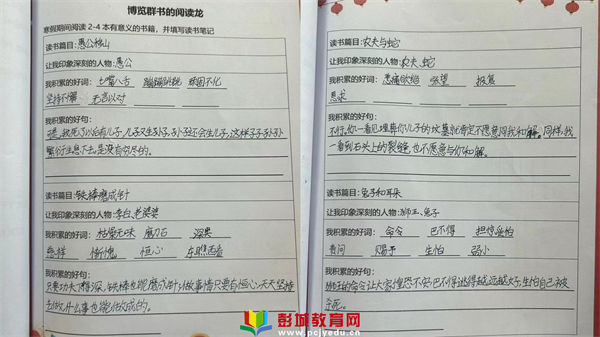 博览群书的阅读龙
寒假期间阅读 2-4 本有意义的书籍，并填写读书笔记
读书篇目：愚公移山
让我印象深刻的人物：愚公
我积累的好词：七嘴八舌 蹦蹦跳跳 顽固不化
坚持不懈 无言以对
我积累的好句：
我死了以后有儿子，儿子又生孙子，孙子还会生儿子，这样子子孙孙
繁衍生息下去，是没有穷尽的。
读书篇目：铁棒磨成针
让我印象深刻的人物：李白，老婆婆
我积累的好词：枯燥无味 磨刀石 深奥
慈祥 惭愧 恒心 东瞧西看
我积累的好句：
只要功夫下得深，铁棒也能磨成针，做事情只要有恒心，天天坚持
去做，什么事也能做成的。
读书篇目：农夫与蛇
让我印象深刻的人物：农夫、蛇
我积累的好词：悲痛欲绝 报复
恳求
我积累的好句：
不行，你一看见埋葬你儿子的坟墓就肯定不愿意同我和解。同样，我
一看到石头上的裂缝，也不愿意与你和解。
读书篇目：兔子和耳朵
让我印象深刻的人物：狮王、兔子
我积累的好词：命令 巴不得 担惊受怕
责问 赐予 生怕 弱小
我积累的好句：
狮王的命令让大家惶恐不安，巴不得逃得越远越好，生怕自己被
彭城教育网
www.pcjyedu.cn